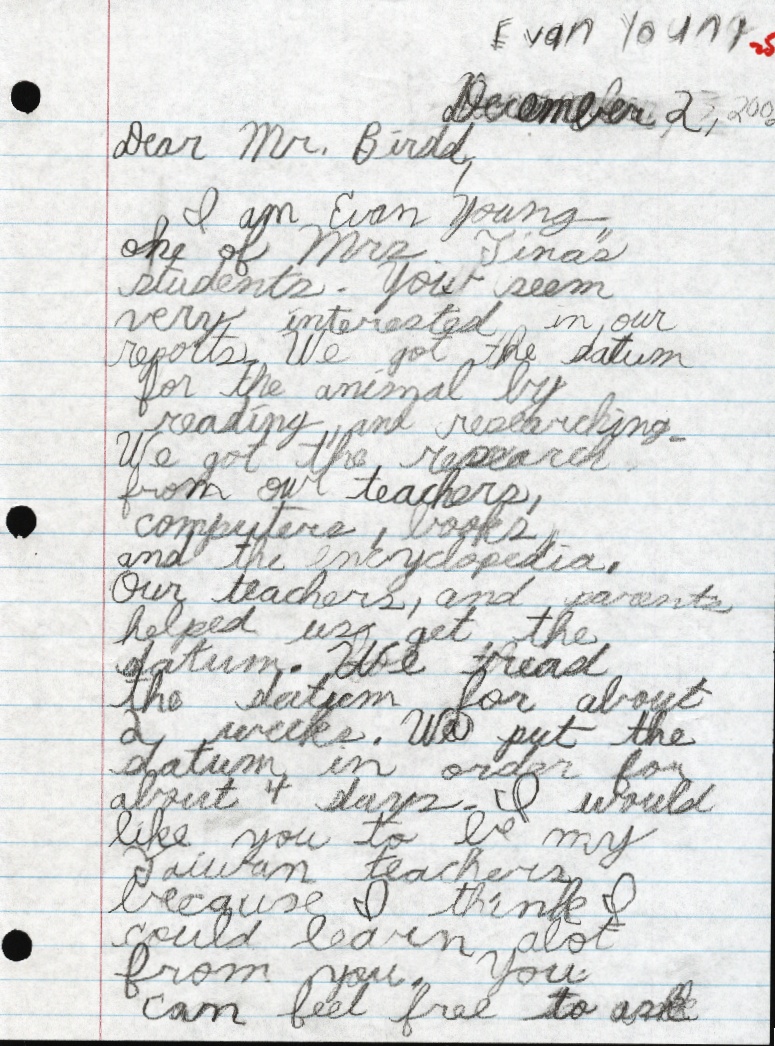 Evan Young
25
December 2, 200
Dear Mr. Birdd,
I am Evan Young
one of Mrs. Tina's
students. You seem
very interested in our
reports. We got the datum
for the animal by
reading and researching.
We got the research
from our teachers,
computers, books,
and the encyclopedia.
Our teachers, and parents
helped us get the
datum. We read
the datum for about
2 weeks. We put the
datum in order for
about 4 days. I would
like you to be my
Taiwan teachers
because I think I
could learn alot
from you. You
can feel free to ask